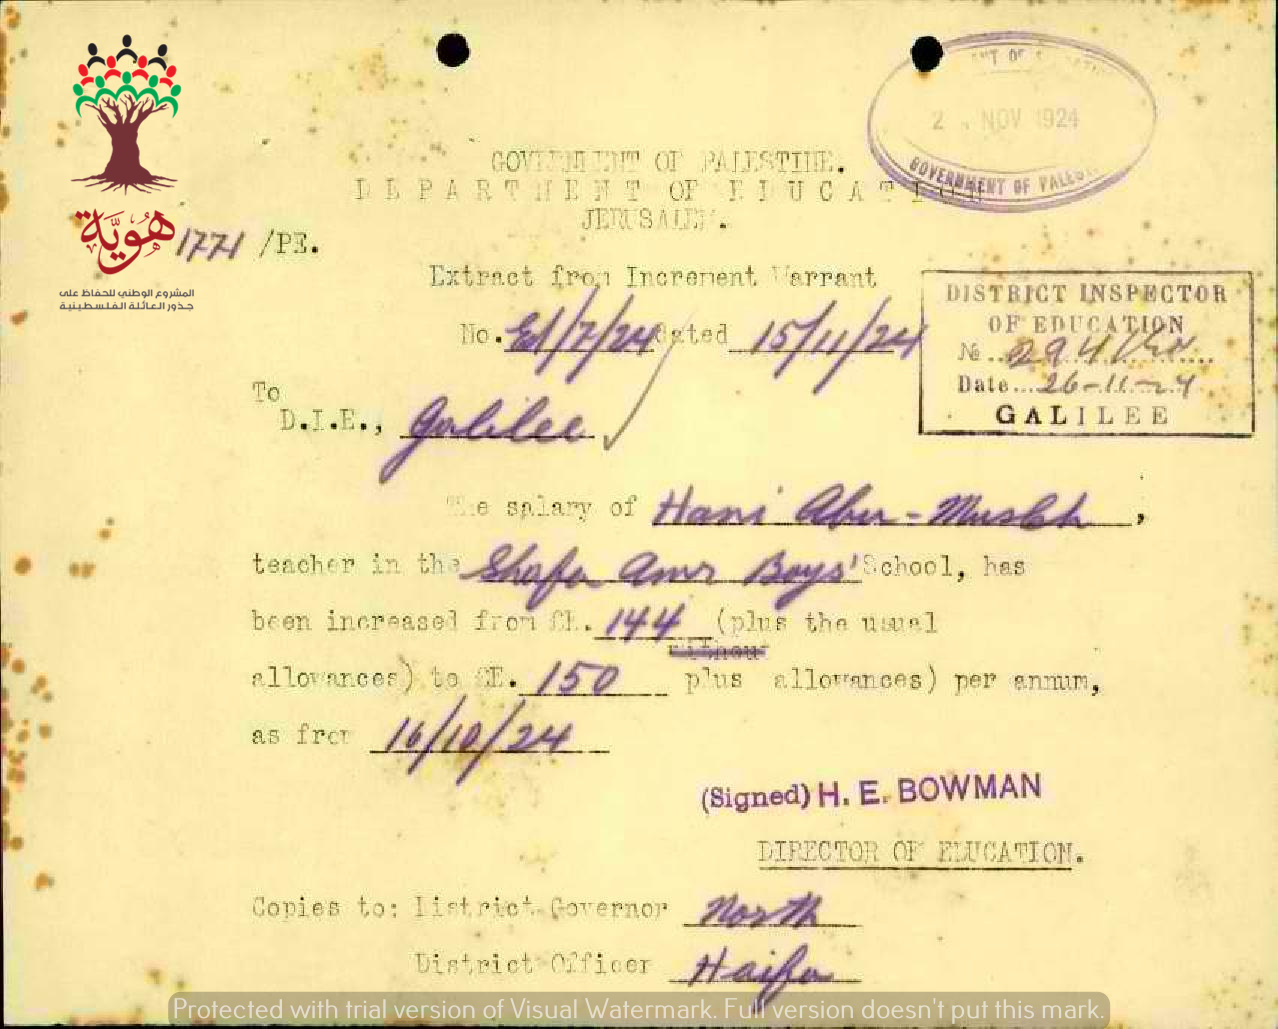 هوية
المشروع الوطني للحفاظ على
جذور العائلة الفلسطينية
NOV 1924
GOVERNMENT OF PALEST
GOVERNMENT OF PALESTINE.
DEPARTMENT OF EDUCATION
JERUSALEM.
1771 /PE.
Extract from Increment Warrant
No. Ed/7/24 dated 15/11/24
DISTRICT INSPECTOR
OF EDUCATION
No
Date 26-11-24
GALILEE
To
D.I.E., Galilee
The salary of Hani Abu-Musleh,
teacher in the Shafa Amr Boys' School, has
been increased from £E. 144 (plus the usual
without
allowances) to £E. 150 plus allowances) per annum,
as from 16/10/24
(Signed) H. E. BOWMAN
DIRECTOR OF EDUCATION.
Copies to: District Governor North
District Officer Haifa
Protected with trial version of Visual Watermark. Full version doesn't put this mark.